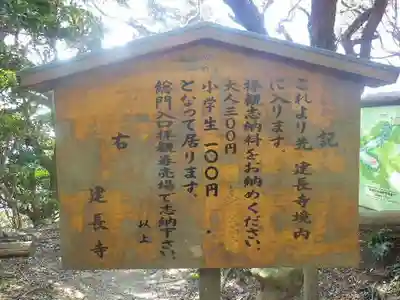 記
これより先、建長寺境内
に入ります。
拝観志納料をお納めください。
大人三〇〇円
小学生一〇〇円
となって居ります。
総門入口拝観券売場で志納下さい。
以上
右
建長寺